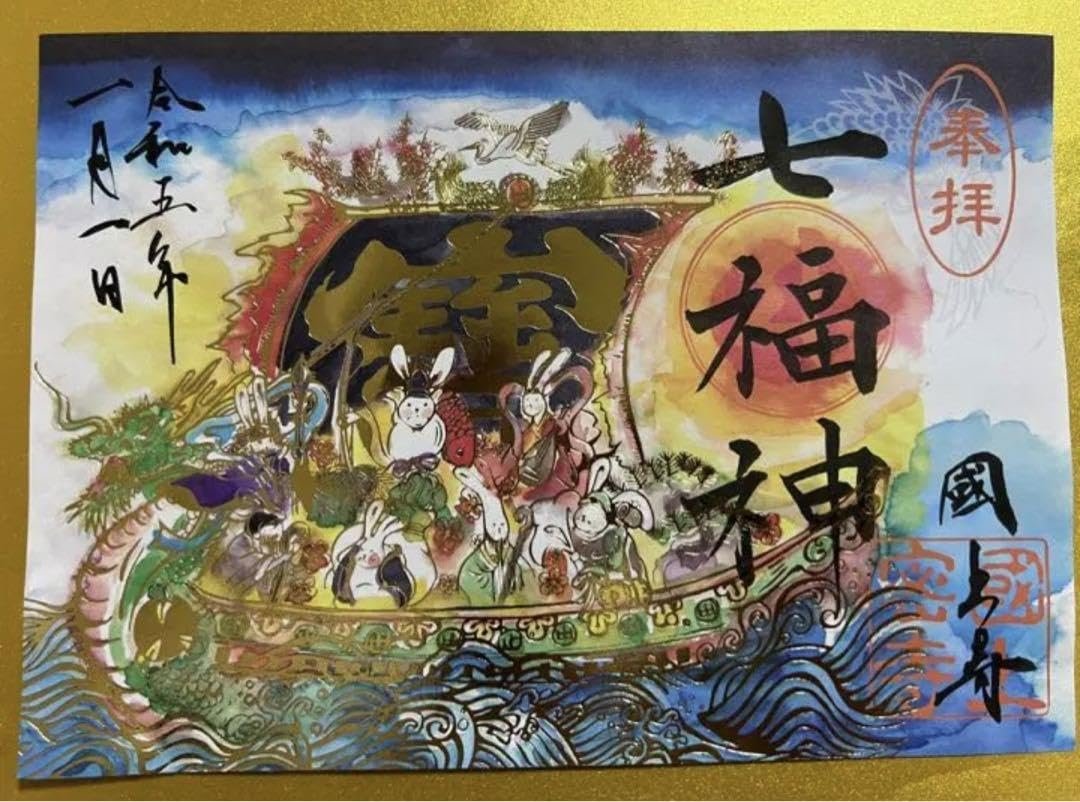 奉拝
七福神
國上寺
令和五年
一月一日
寶